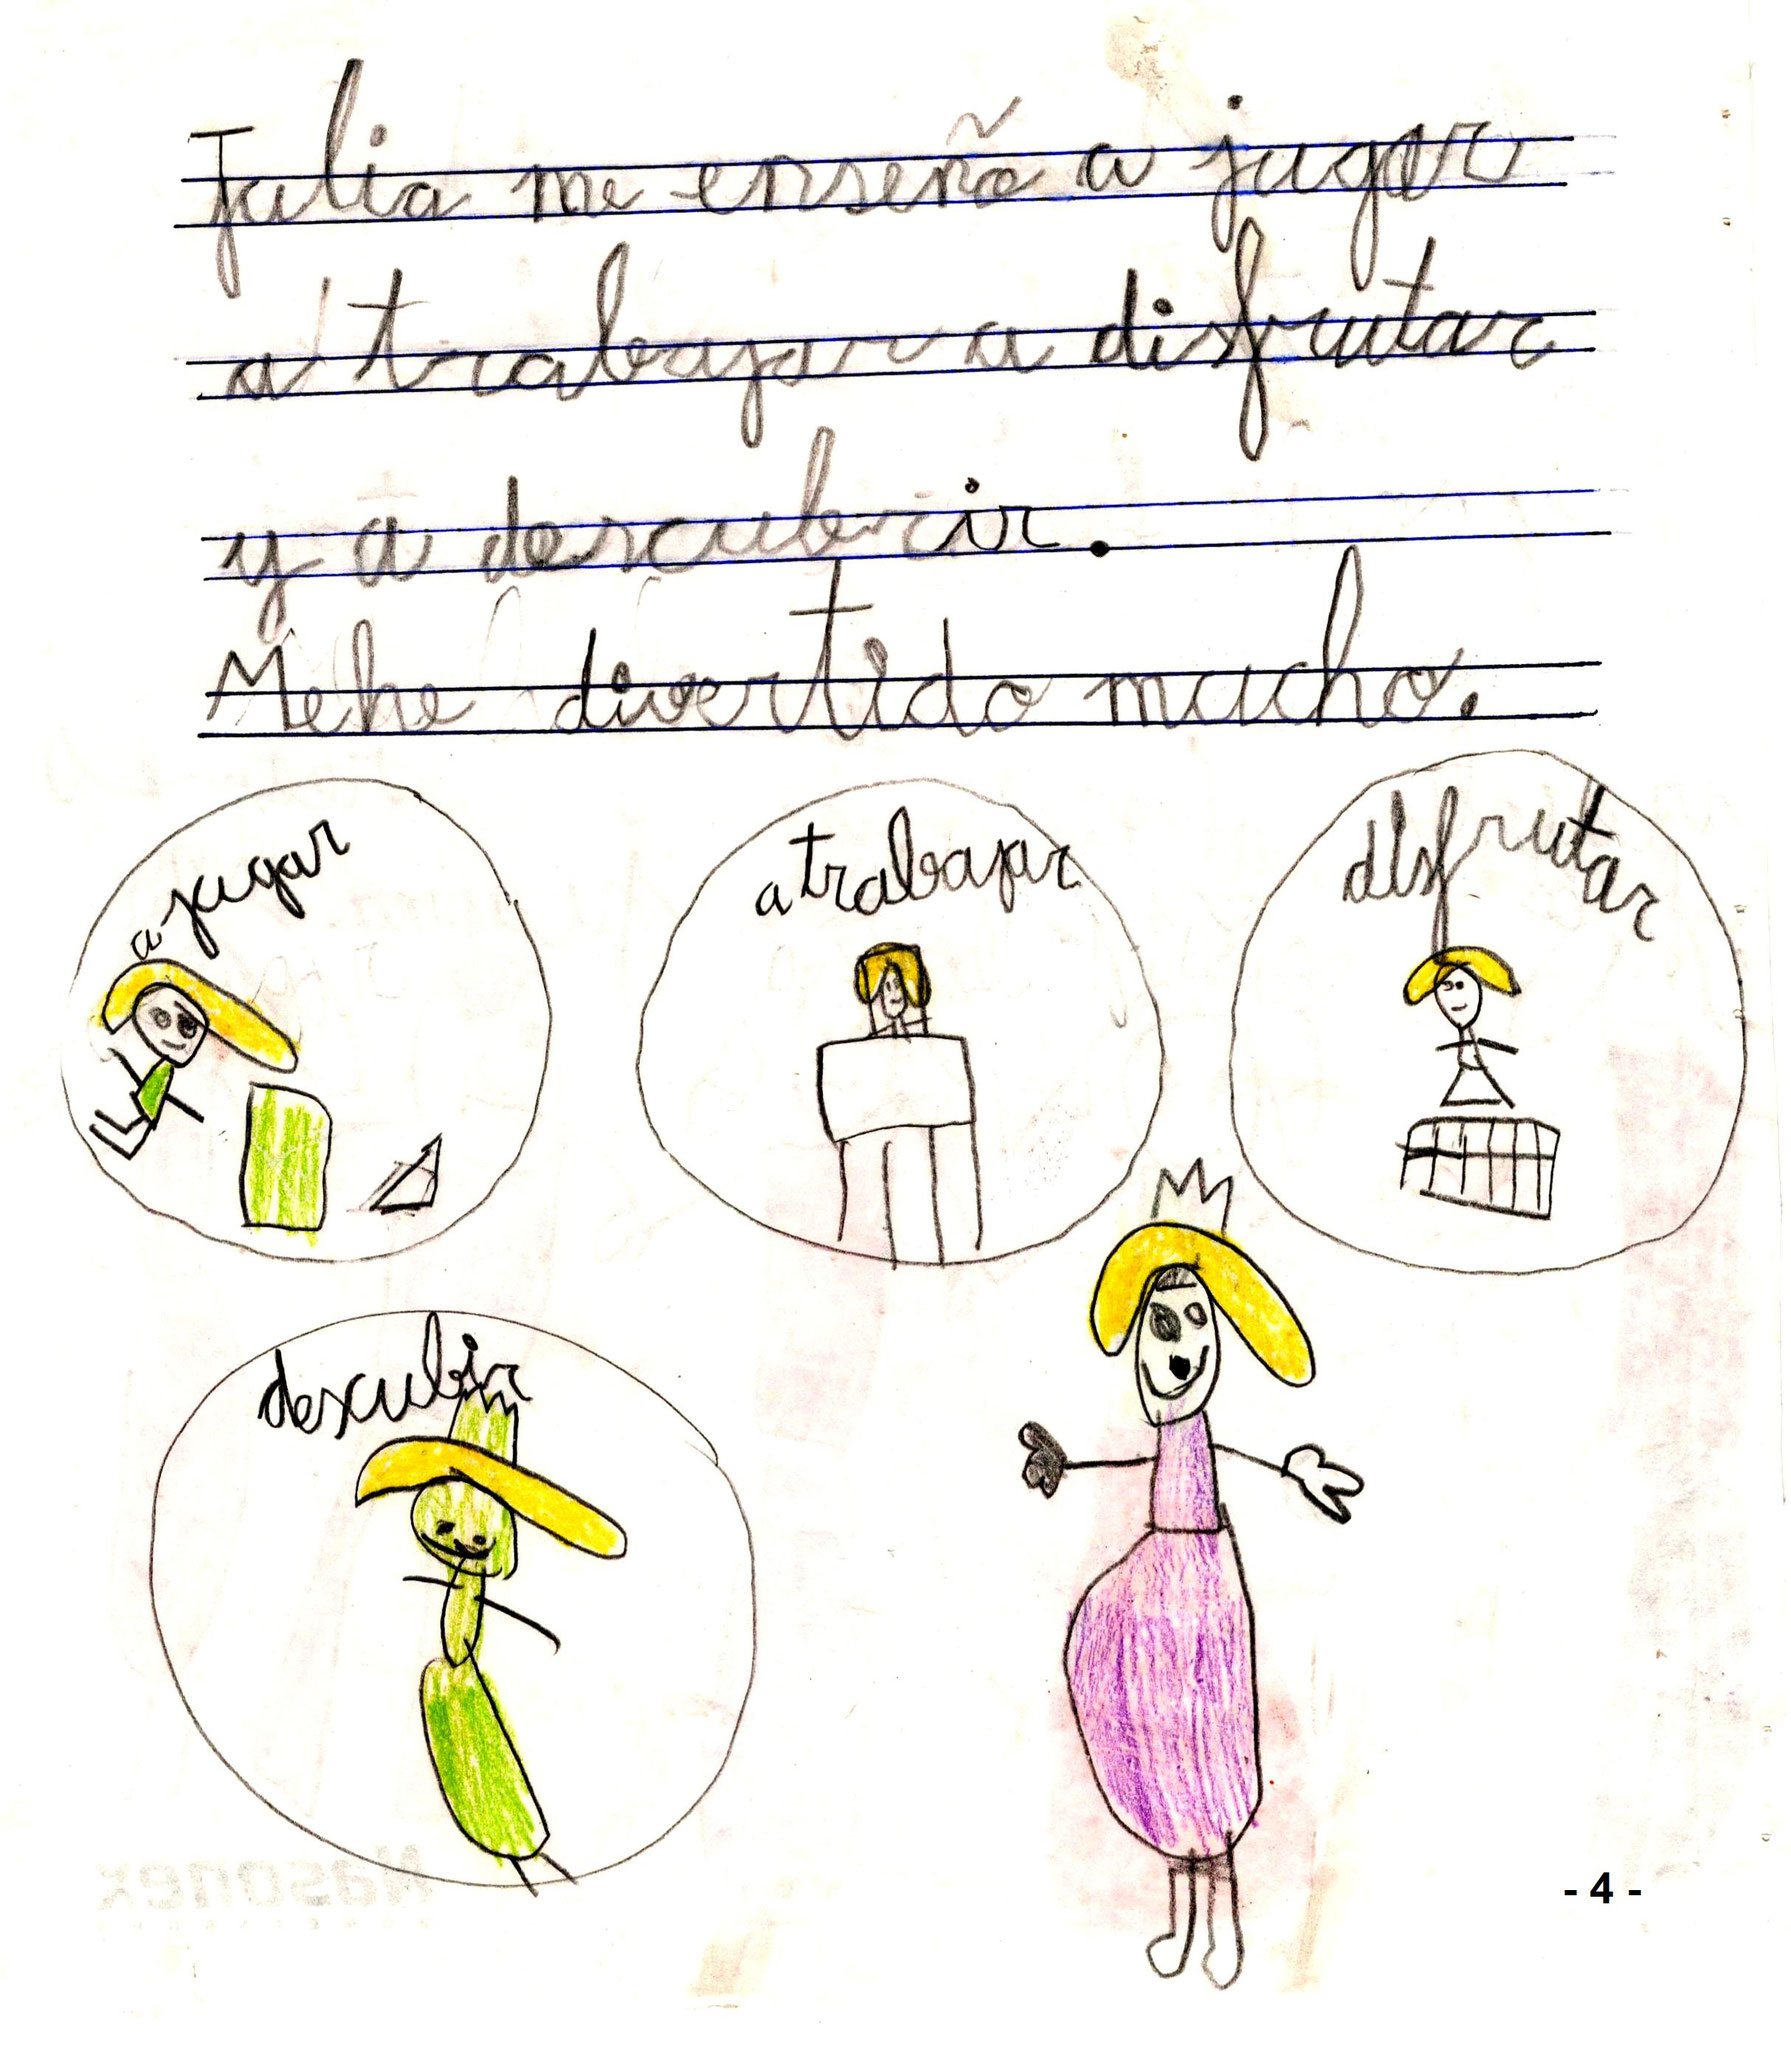 Julia me enseño a jugar
a trabajar a disfrutar
y a descubrir.
Mehe divertido mucho.
a jugar
a trabajar
disfrutar
descubir
Nasonex
- 4 -